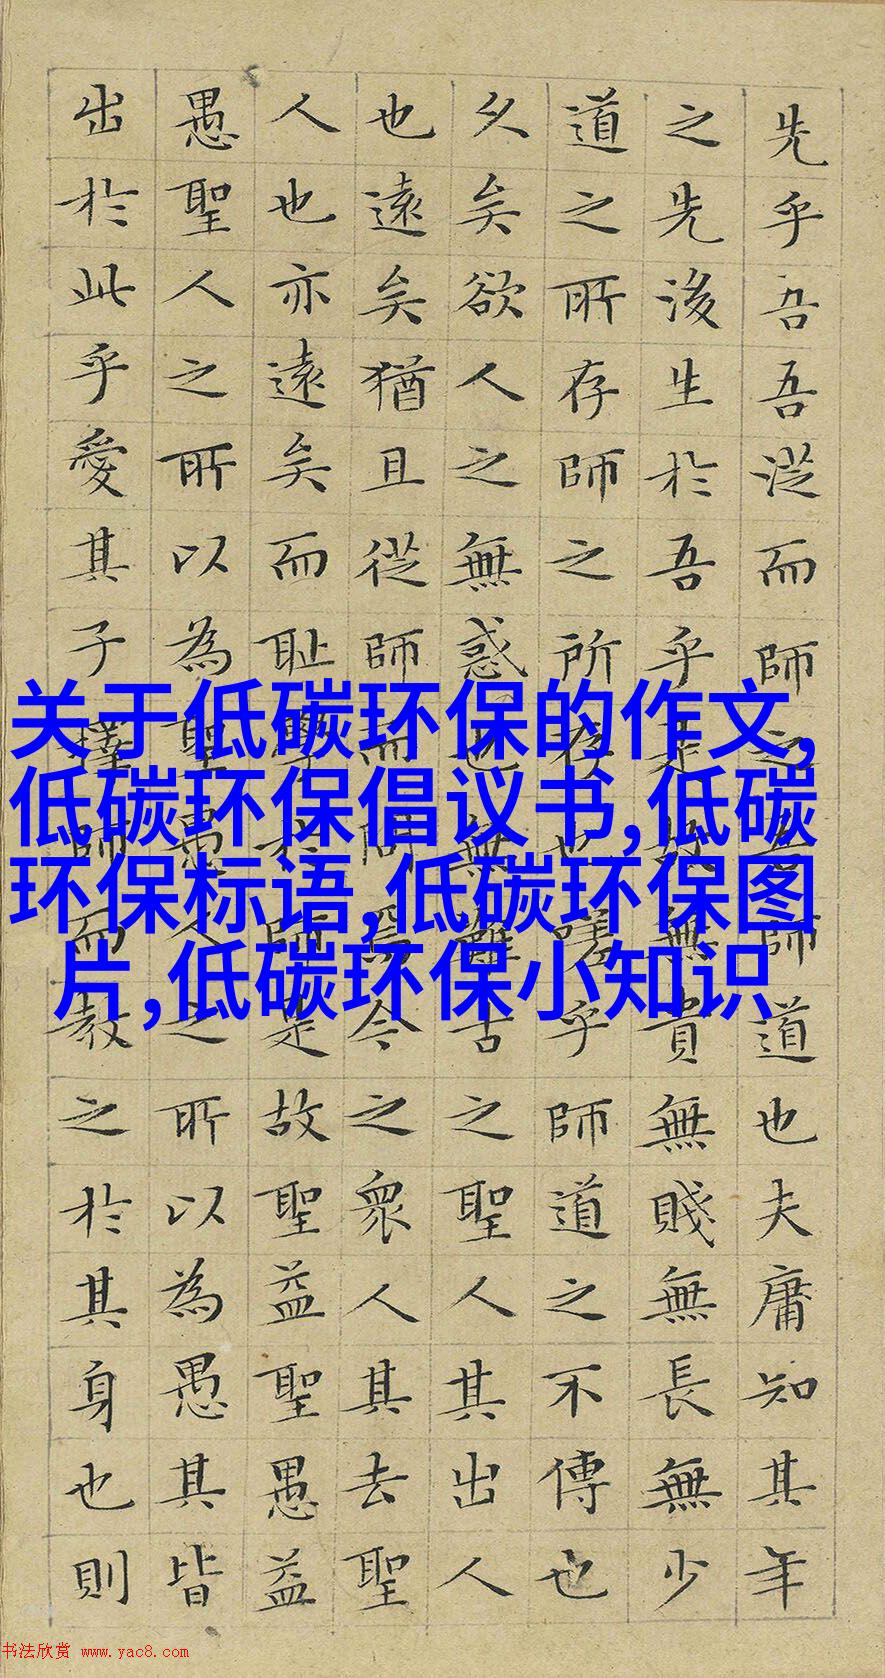 先乎吾吾從而師之吾師道也夫庸知其年
之先後生於吾乎是故無貴無賤無長無少
道之所存師之所存也嗟乎師道之不傳也
久矣欲人之無惑也無難古之聖人其出人
也遠矣猶且從師而問焉今之衆人其去聖
人也亦遠矣而恥學於師是故聖益聖愚益
愚聖人之所以為聖愚人之所以為愚其皆
出於此乎愛其子擇師而教之於其身也則
关于低碳环保的作文,
低碳环保倡议书,低碳
环保标语,低碳环保图
片,低碳环保小知识
书法欣赏 www.yac8.com